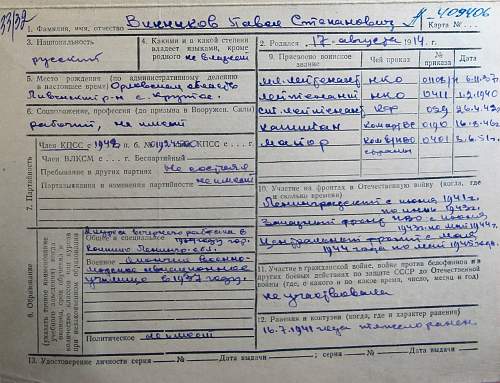 33/32
409406
1. Фамилия, имя, отчество Винников Павел Степанович Карта № . . .
3. Национальность
русский
4. Какими и в какой степени владеет языками, кроме родного не владеет
2. Родился 17 августа 1914 г.
9. Присвоено воинское звание
Чей приказ
№ приказа
Дата
5. Место рождения (по административному делению в настоящее время) Орловская область
Ливенский р-н с. Крутое.
мл. лейтенант НКО
лейтенант НКО 0411
ст. лейтенант 039
капитан 0190
майор 0401
6. Соцположение, профессия (до призыва в Вооружен. Силы)
рабочий, не имеет
7. Партийность
Член КПСС с 1942 п. б. № КПСС с . . . г.
Член ВЛКСМ с . . . г. Беспартийный
Пребывание в других партиях не состоял
Партвзыскания и изменения партийности не имеет
10. Участие на фронтах в Отечественную войну (когда, где и сколько времени)
Ленинградский с июня 1941г.
по июнь 1943г.
Западный фронт с июня
1943 по май 1944г.
Центральный фронт с мая
1944 года по май 1945 года.
8. Образование
Общее и специальное
Военное окончил военно-
морское авиационное
училище в 1937 году.
Политическое не имеет
11. Участие в гражданской войне, войне против белофиннов и в других боевых действиях по защите СССР до Отечественной войны (где, с какого и по какое время, число, месяц и год)
не участвовал
12. Ранения и контузии (когда, где и характер ранения)
16.7.1941 года тяжело ранен
13. Удостоверение личности серия . . . № . . . Дата выдачи . . . ; серия . . . № . . . Дата выдачи